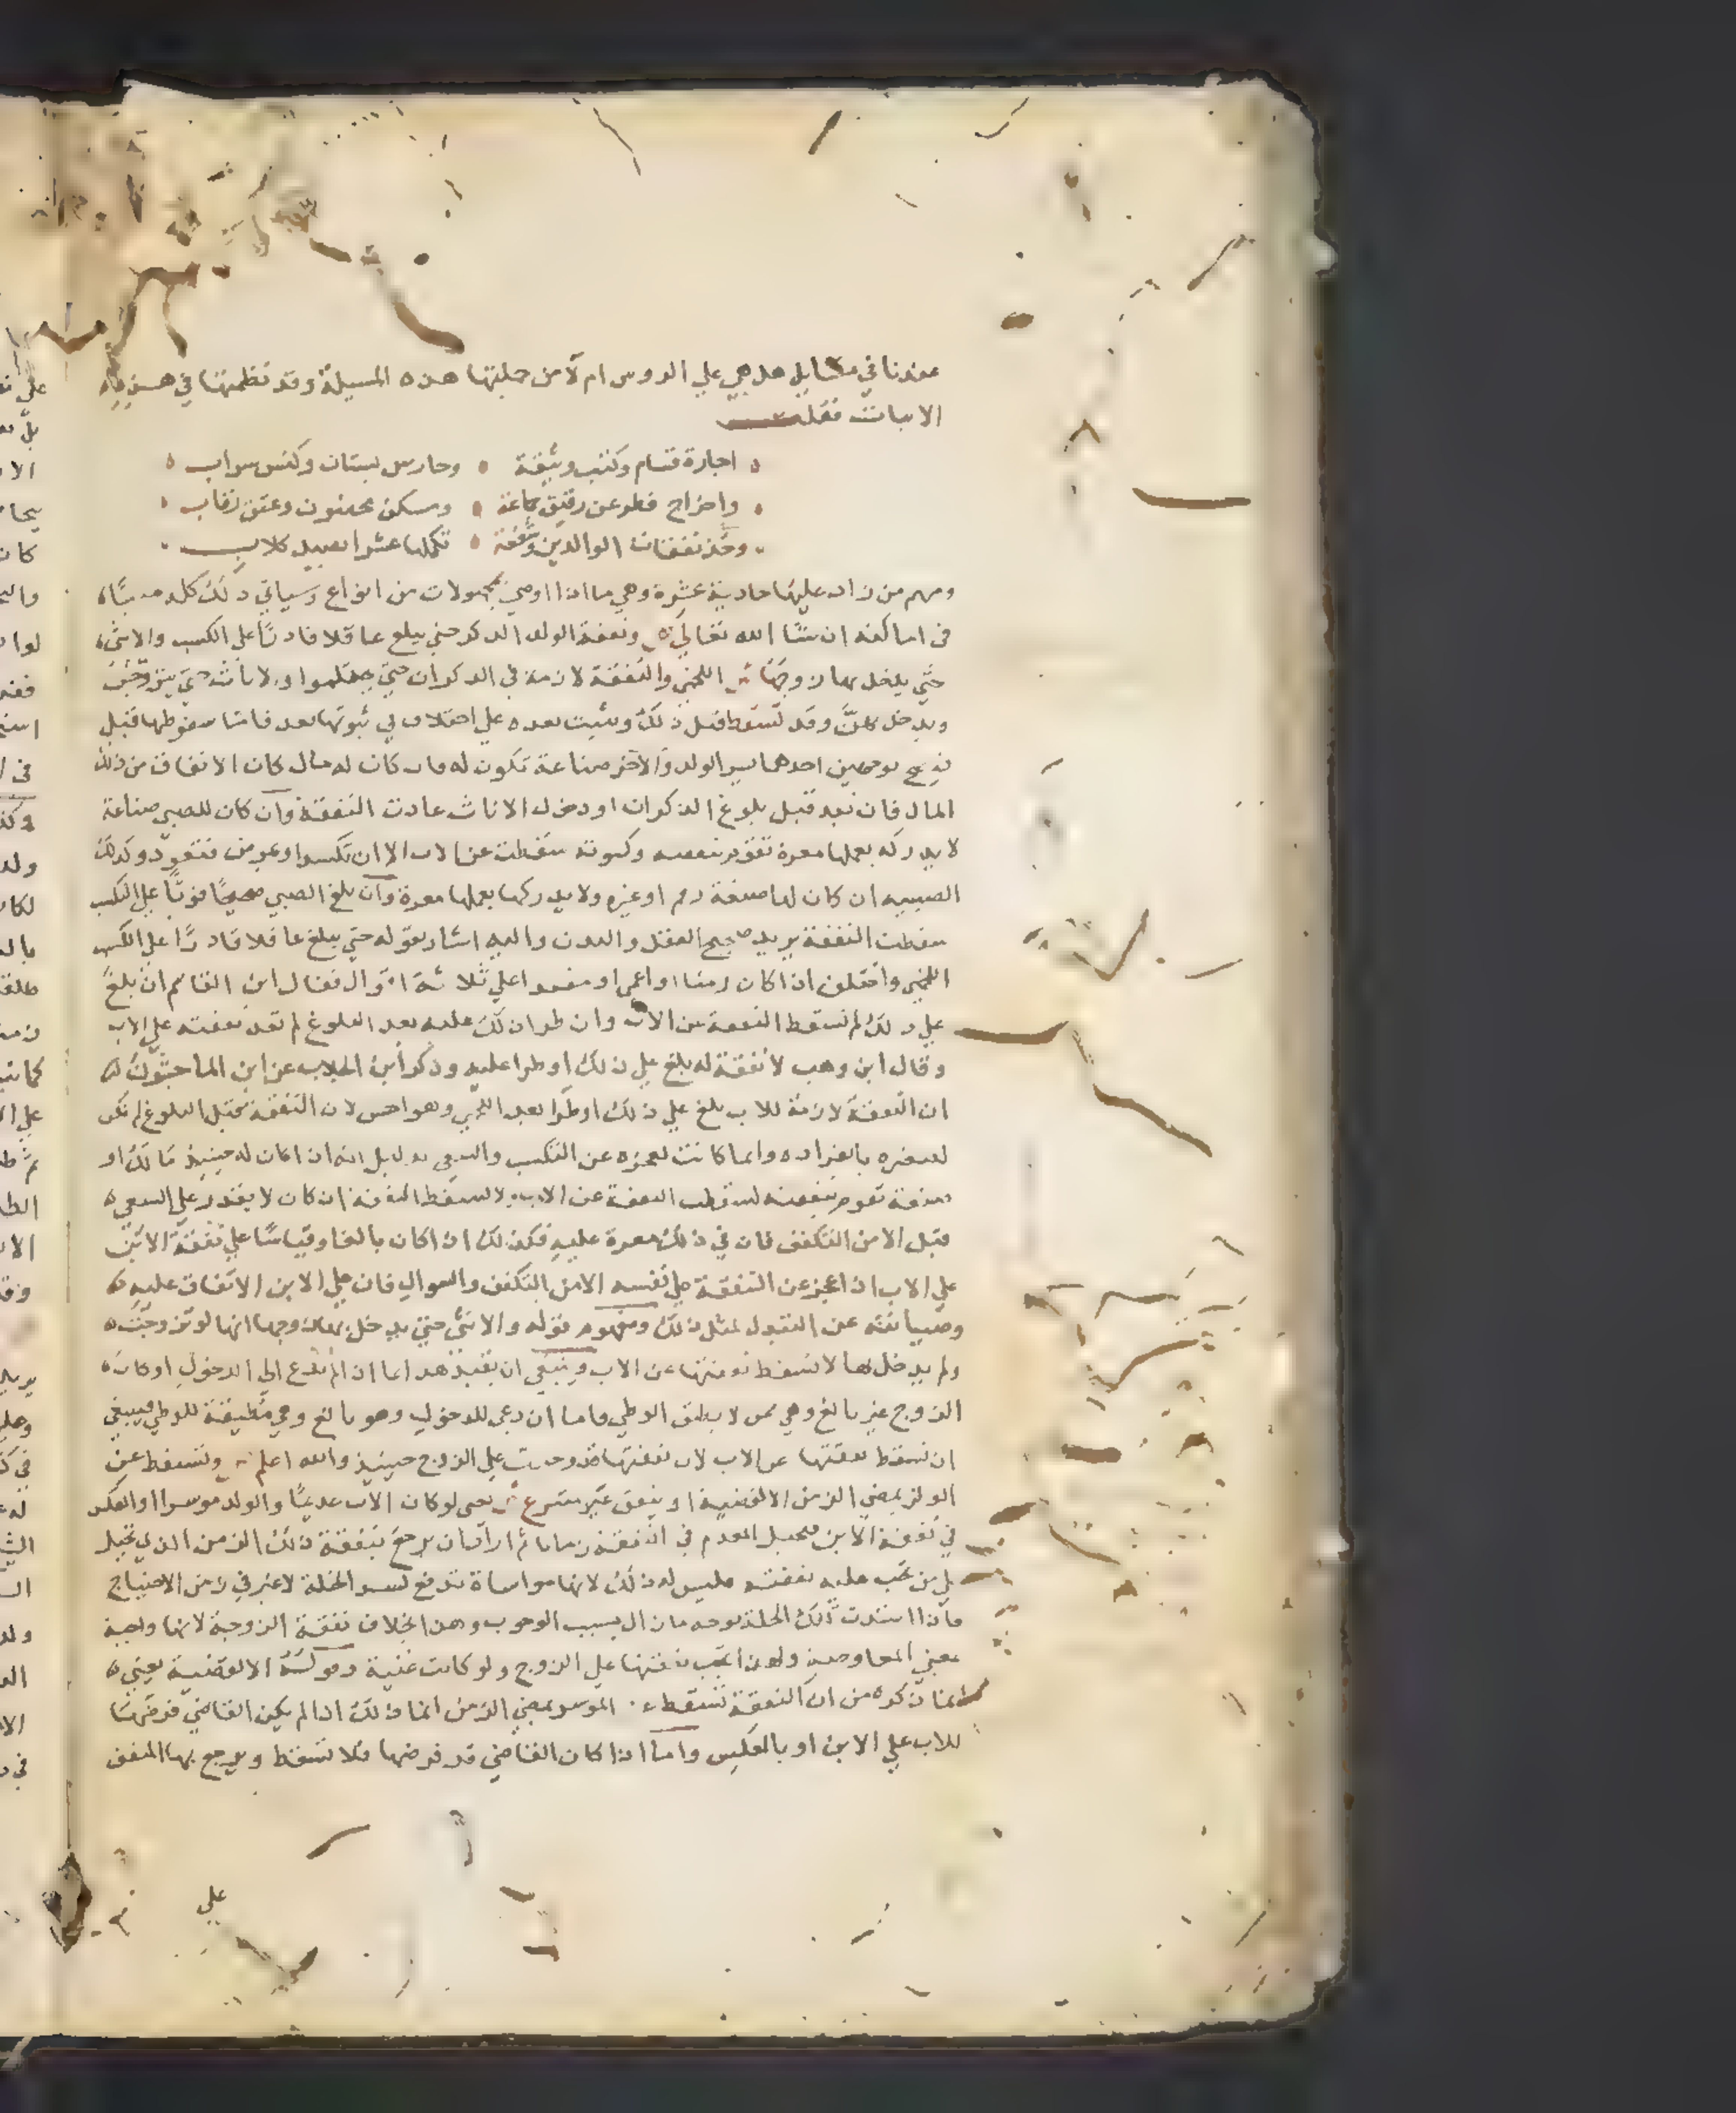 عندنا في مسايل هل هي علي الروس ام لا من جملتها هذه المسيلة وقد نظمتها في هذه
الابيات فقلت
اجارة قسام وكتب وثيقة وحارس بستان وكنس سراب
واخراج فطر عن رقيق جماعة ومسكن مجنون وعتق رقاب
وخذ نفقات الوالدين وشفعة تكملها عشرا بصيد كلاب
ومنهم من زاد عليها حادية عشرة وهي ما اذا اوصي بمجهولات من انواع وسياتي ذلك كله مبينا
في اماكنه ان شا الله تعالي ونفقة الولد الذكر حتي يبلغ عاقلا قادرا علي الكسب والانثي
حتي يدخل بها زوجها اللخمي والنفقة لازمة في الذكران حتي يحتلموا والاناث حتي يتزوجن
ويدخل بهن وقد تسقط قبل ذلك ويثبت بعده علي اختلاف في ثبوتها بعد فاما سقوطها قبل
فيصح بوجهين احدهما يسر الولد والاخر صناعة تكون له فان كان له مال كان الانفاق من ذلك
المال فان نفد قبل بلوغ الذكران او دخول الاناث عادت النفقة وان كان للصبي صناعة
لا يدركه بعملها معرة تقوم بنفقته وكسوته سقطت عن الاب الا ان تكسد او يمرض فتعود وكذلك
الصبية ان كان لها صنعة رقم او غيره ولا يدركها بعملها معرة وان بلغ الصبي صحيحا قويا علي الكسب
سقطت النفقة يريد صحيح العقل والبدن واليه اشار بقوله حتي يبلغ عاقلا قادرا علي الكسب
اللخمي واختلف اذا كان زمنا او اعمي او مقعدا علي ثلاثة اقوال فقال ابن القاسم ان بلغ
علي ذلك لم تسقط النفقة عن الاب وان طرا ذلك عليه بعد البلوغ لم تعد نفقته علي الاب
وقال ابن وهب لا نفقة له بلغ علي ذلك او طرا عليه وذكر ابن الجلاب عن ابن الماجشون
ان النفقة لازمة للاب بلغ علي ذلك او طرا بعد اللخمي وهو احسن لان النفقة قبل البلوغ لم تكن
لصغره بانفراده وانما كانت لعجزه عن التكسب والسعي بدليل انه اذا كان له حينيذ مال او
صنعة تقوم بنفقته لسقطت النفقة عن الاب ولا تسقط النفقة ان كان لا يقدر علي السعي
قبل الا من التكفف فان في ذلك معرة عليه فكذلك اذا كان بالغا وقياسا علي نفقة الابن
علي الاب اذا عجز عن النفقة علي نفسه الا من التكفف والسوال فان علي الابن الانفاق عليه
وصيانته عن التبذل لمثل ذلك ومفهوم قوله والانثي حتي يدخل بها زوجها انها لو تزوجت
ولم يدخل بها لا تسقط نفقتها عن الاب وينبغي ان يقيد هذا بما اذا لم تدع الي الدخول او كان
الزوج غير بالغ وهي ممن لا يطيق الوطي واما ان دعي للدخول وهو بالغ وهي مطيقة للوطي فينبغي
ان تسقط نفقتها عن الاب لان نفقتها قد وجبت علي الزوج حينيذ والله اعلم وتسقط عن
الموسر بمضي الزمن الا لقضية او ينفق غير متبرع يعني لو كان الاب عديما والولد موسرا او العكس
في نفقة الابن فتحيل المعدم في النفقة زمانا ثم اراد ان يرجع بنفقة ذلك الزمن الذي تحيل
علي من تجب عليه نفقته فليس له ذلك لانها مواساة تدفع لسد الخلة لا غير في زمن الاحتياج
فاذا استدت تلك الخلة بوجه ما زال سبب الوجوب وهذا بخلاف نفقة الزوجة لانها واجبة
بمعني المعاوضة ولهذا تجب نفقتها علي الزوج ولو كانت غنية وقوله الا لقضية يعني
انما ذكره من ان النفقة تسقط عن الموسر بمضي الزمن انما ذلك اذا لم يكن القاضي فرضها
للاب علي الابن او بالعكس واما اذا كان القاضي قد فرضها فلا تسقط ويرجع بها المنفق
علي